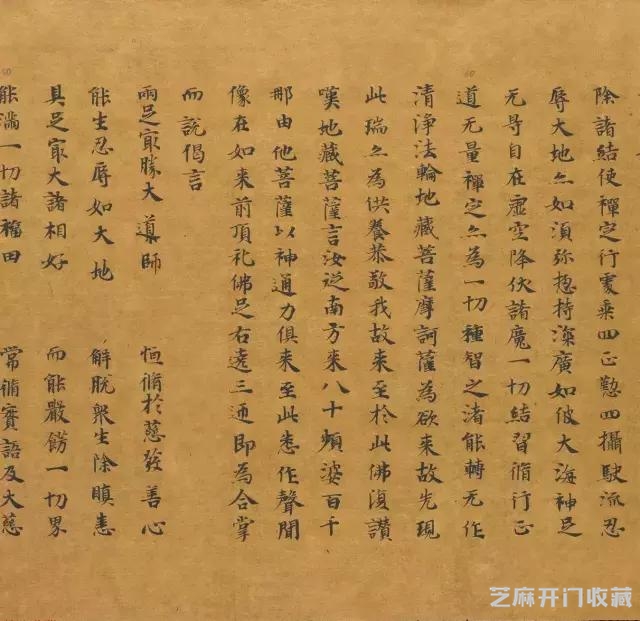 除諸結使禪定行處乘四正懃四攝駛流忍
辱大地亦如須弥惣持深廣如彼大海神足
无㝵自在虛空降伏諸魔一切結習脩行正
道无量禪定亦為一切種智之渚能轉无作
清淨法輪地藏菩薩摩訶薩為欲来故先現
此瑞亦為供養恭敬我故来至於此佛復讃
嘆地藏菩薩言汝從南方来八十頻婆百千
那由他菩薩以神通力俱来至此悉作聲聞
像在如来前頂礼佛足右遶三迊即為合掌
而說偈言
兩足㝡勝大導師 恒脩於慈發善心
能生忍辱如大地 解脫衆生除瞋恚
具足㝡大諸相好 而能嚴飾一切界
能滿一切諸福田 常脩實語及大慈
60
50
芝麻开门收藏